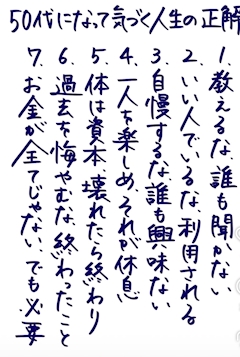 50代になって気づく人生の正解
1. 教えるな、誰も聞かない
2. いい人でいるな、利用される
3. 自慢するな、誰も興味ない
4. 一人を楽しめ、それが休息
5. 体は資本、壊れたら終わり
6. 過去を悔やむな、終わったこと
7. お金が全てじゃない、でも必要